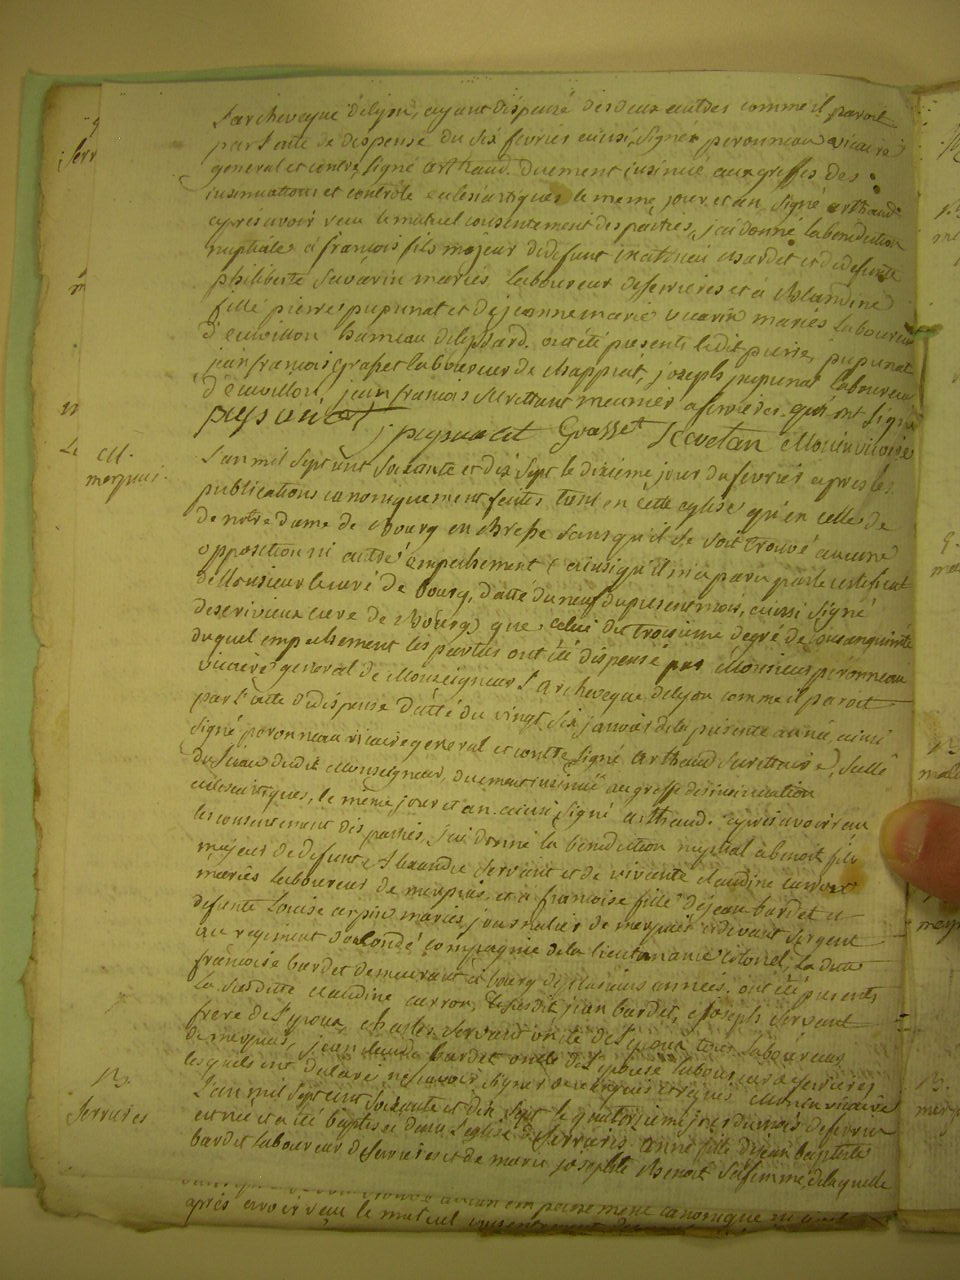 L'archeveque de lyon, ayant dispensé des deux autres comme il paroit
par l'acte de dispense du six fevrier ainsi signé peronneau vicaire
general et contre signé arthaud. Duement insinué aux greffes des
insinuations et controle eclesiastiques le meme jour et an signé arthaud
après avoir veu le mutuel consentement des parties, j'ai donné la benediction
nuptiale a françois fils majeur de defunt mathieu bardet et de defunte
philiberte savarin mariés laboureur de serrieres et a blandine
fille pierre pupunat et de jeanne marie mariés laboureur
hameau de ont été presents ledit pierre pupunat
jean françois grasset laboureur de chappiat, joseph pupunat laboureur
jean françois meunier a serrieres qui ont signé
J pupunat Grasset Secretan Monin vicaire
M.
merpuis.
L'an mil sept cent soixante et dix sept le dixieme jour du fevrier apres les
publications canoniquement faites tant en cette eglise qu'en celle de
de notre dame de bourg en bresse sans qu'il se soit trouvé aucune
opposition ni autre empechement (ainsi qu'il m'a paru par le certificat
de Monsieur le curé de bourg, datté du neuf du present mois, aussi signé
curé de Bourg) que celui du troisieme degré de consanguinité
duquel empechement les parties ont été dispensé par Monsieur peronneau
vicaire general de Monseigneur l'archeveque de lyon comme il paroit
par l'acte de dispense datté du vingt six janvier de la presente année, ainsi
signé peronneau vicaire general et contre signé arthaud secretaire, sellé
du sceau dudit Monseigneur, duement insinué au greffe des insinuation
eclesiastiques, le même jour et an. ainsi signé arthaud. après avoir veu
les consentement des parties, j'ai donné la benediction nuptial a benoit fils
majeur de defunt Alexandre servant et de vivante claudine carron
mariés laboureur de merpuis, et a françoise fille de jean bardet et
defunte Louise mariés journalier de merpuis cy devant sergent
au regiment de condé compagnie de la lieutenance colonel, La ditte
françoise bardet demeurant a bourg de plusieurs années. ont été presents
la susditte claudine carron, le susdit jean bardet, joseph servant
frere de l'epoux, charles servant oncle de l'epoux tous laboureurs
de merpuis, jean claude bardet oncle de l'epouse laboureur a serrieres
lesquels ont declaré ne savoir signer de ce enquis et requis. Monin vicaire
B.
serrieres
L'an mil sept cent soixante et dix sept le quatorzieme jour du mois de fevrier
est née et a été baptisée dans l'eglise de serrieres anne fille de jean baptiste
bardet laboureur de serrieres et de marie josephte benoit sa femme, de laquelle
aucun empechement canonique ni civil
après avoir veu le mutuel consentement